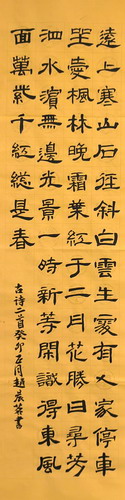 遠上寒山石徑斜白雲生處有人家停車
坐愛楓林晚霜葉紅于二月花勝日尋芳
泗水濱無邊光景一時新等閑識得東風
面萬紫千紅總是春
古诗二首癸卯月趙書